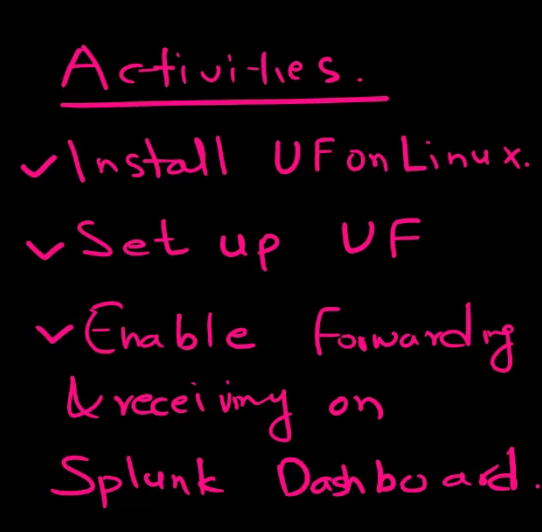 Activities.
✓ Install UF on Linux.
✓ Set up UF
✓ Enable Forwarding
& receiving on
Splunk Dashboard.